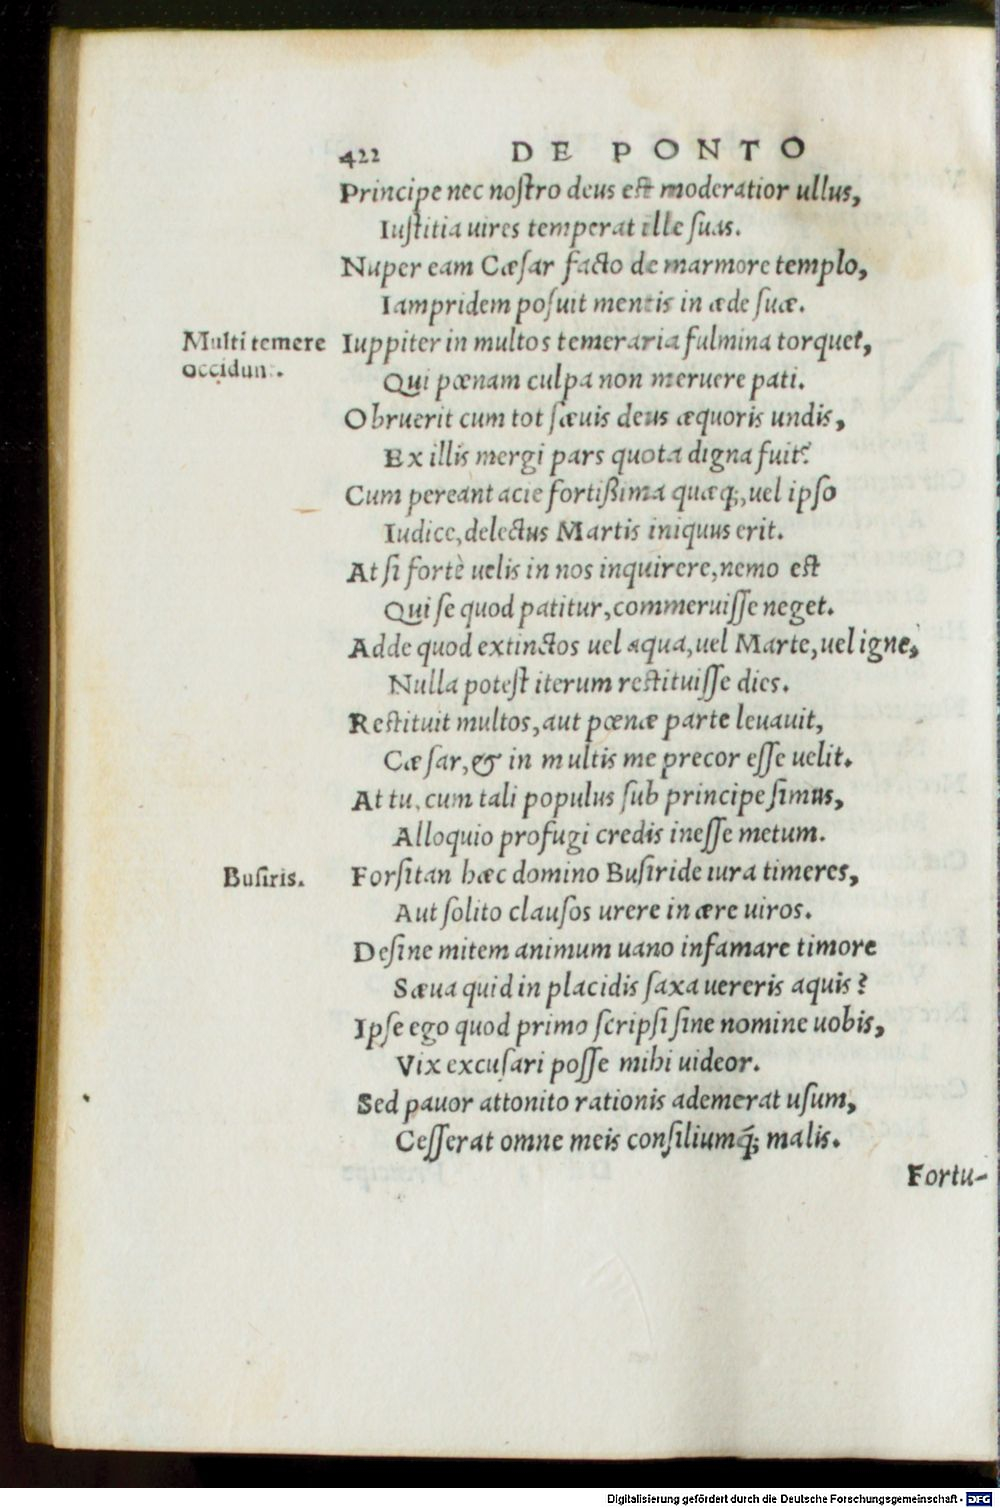 422 DE PONTO
Principe nec nostro deus est moderatior ullus,
Iustitia uires temperat ille suas.
Nuper eam Cæsar facto de marmore templo,
Iampridem posuit mentis in æde suæ.
Multi temere
occidunt.
Iuppiter in multos temeraria fulmina torquet,
Qui pœnam culpa non meruere pati.
Obruerit cum tot sæuis deus æquoris undis,
Ex illis mergi pars quota digna fuit?
Cum pereant acie fortißima quæq;, uel ipso
Iudice, delectus Martis iniquus erit.
At si fortè uelis in nos inquirere, nemo est
Qui se quod patitur, commeruisse neget.
Adde quod extinctos uel aqua, uel Marte, uel igne,
Nulla potest iterum restituisse dies.
Restituit multos, aut pœnæ parte leuauit,
Cæsar, & in multis me precor esse uelit.
At tu, cum tali populus sub principe simus,
Alloquio profugi credis inesse metum.
Busiris.
Forsitan hæc domino Busiride iura timeres,
Aut solito clausos urere in ære uiros.
Desine mitem animum uano infamare timore
Sæua quid in placidis saxa uereris aquis?
Ipse ego quod primo scripsi sine nomine uobis,
Vix excusari posse mihi uideor.
Sed pauor attonito rationis ademerat usum,
Cesserat omne meis consiliumq́; malis.
Fortu-
Digitalisierung gefördert durch die Deutsche Forschungsgemeinschaft - DFG